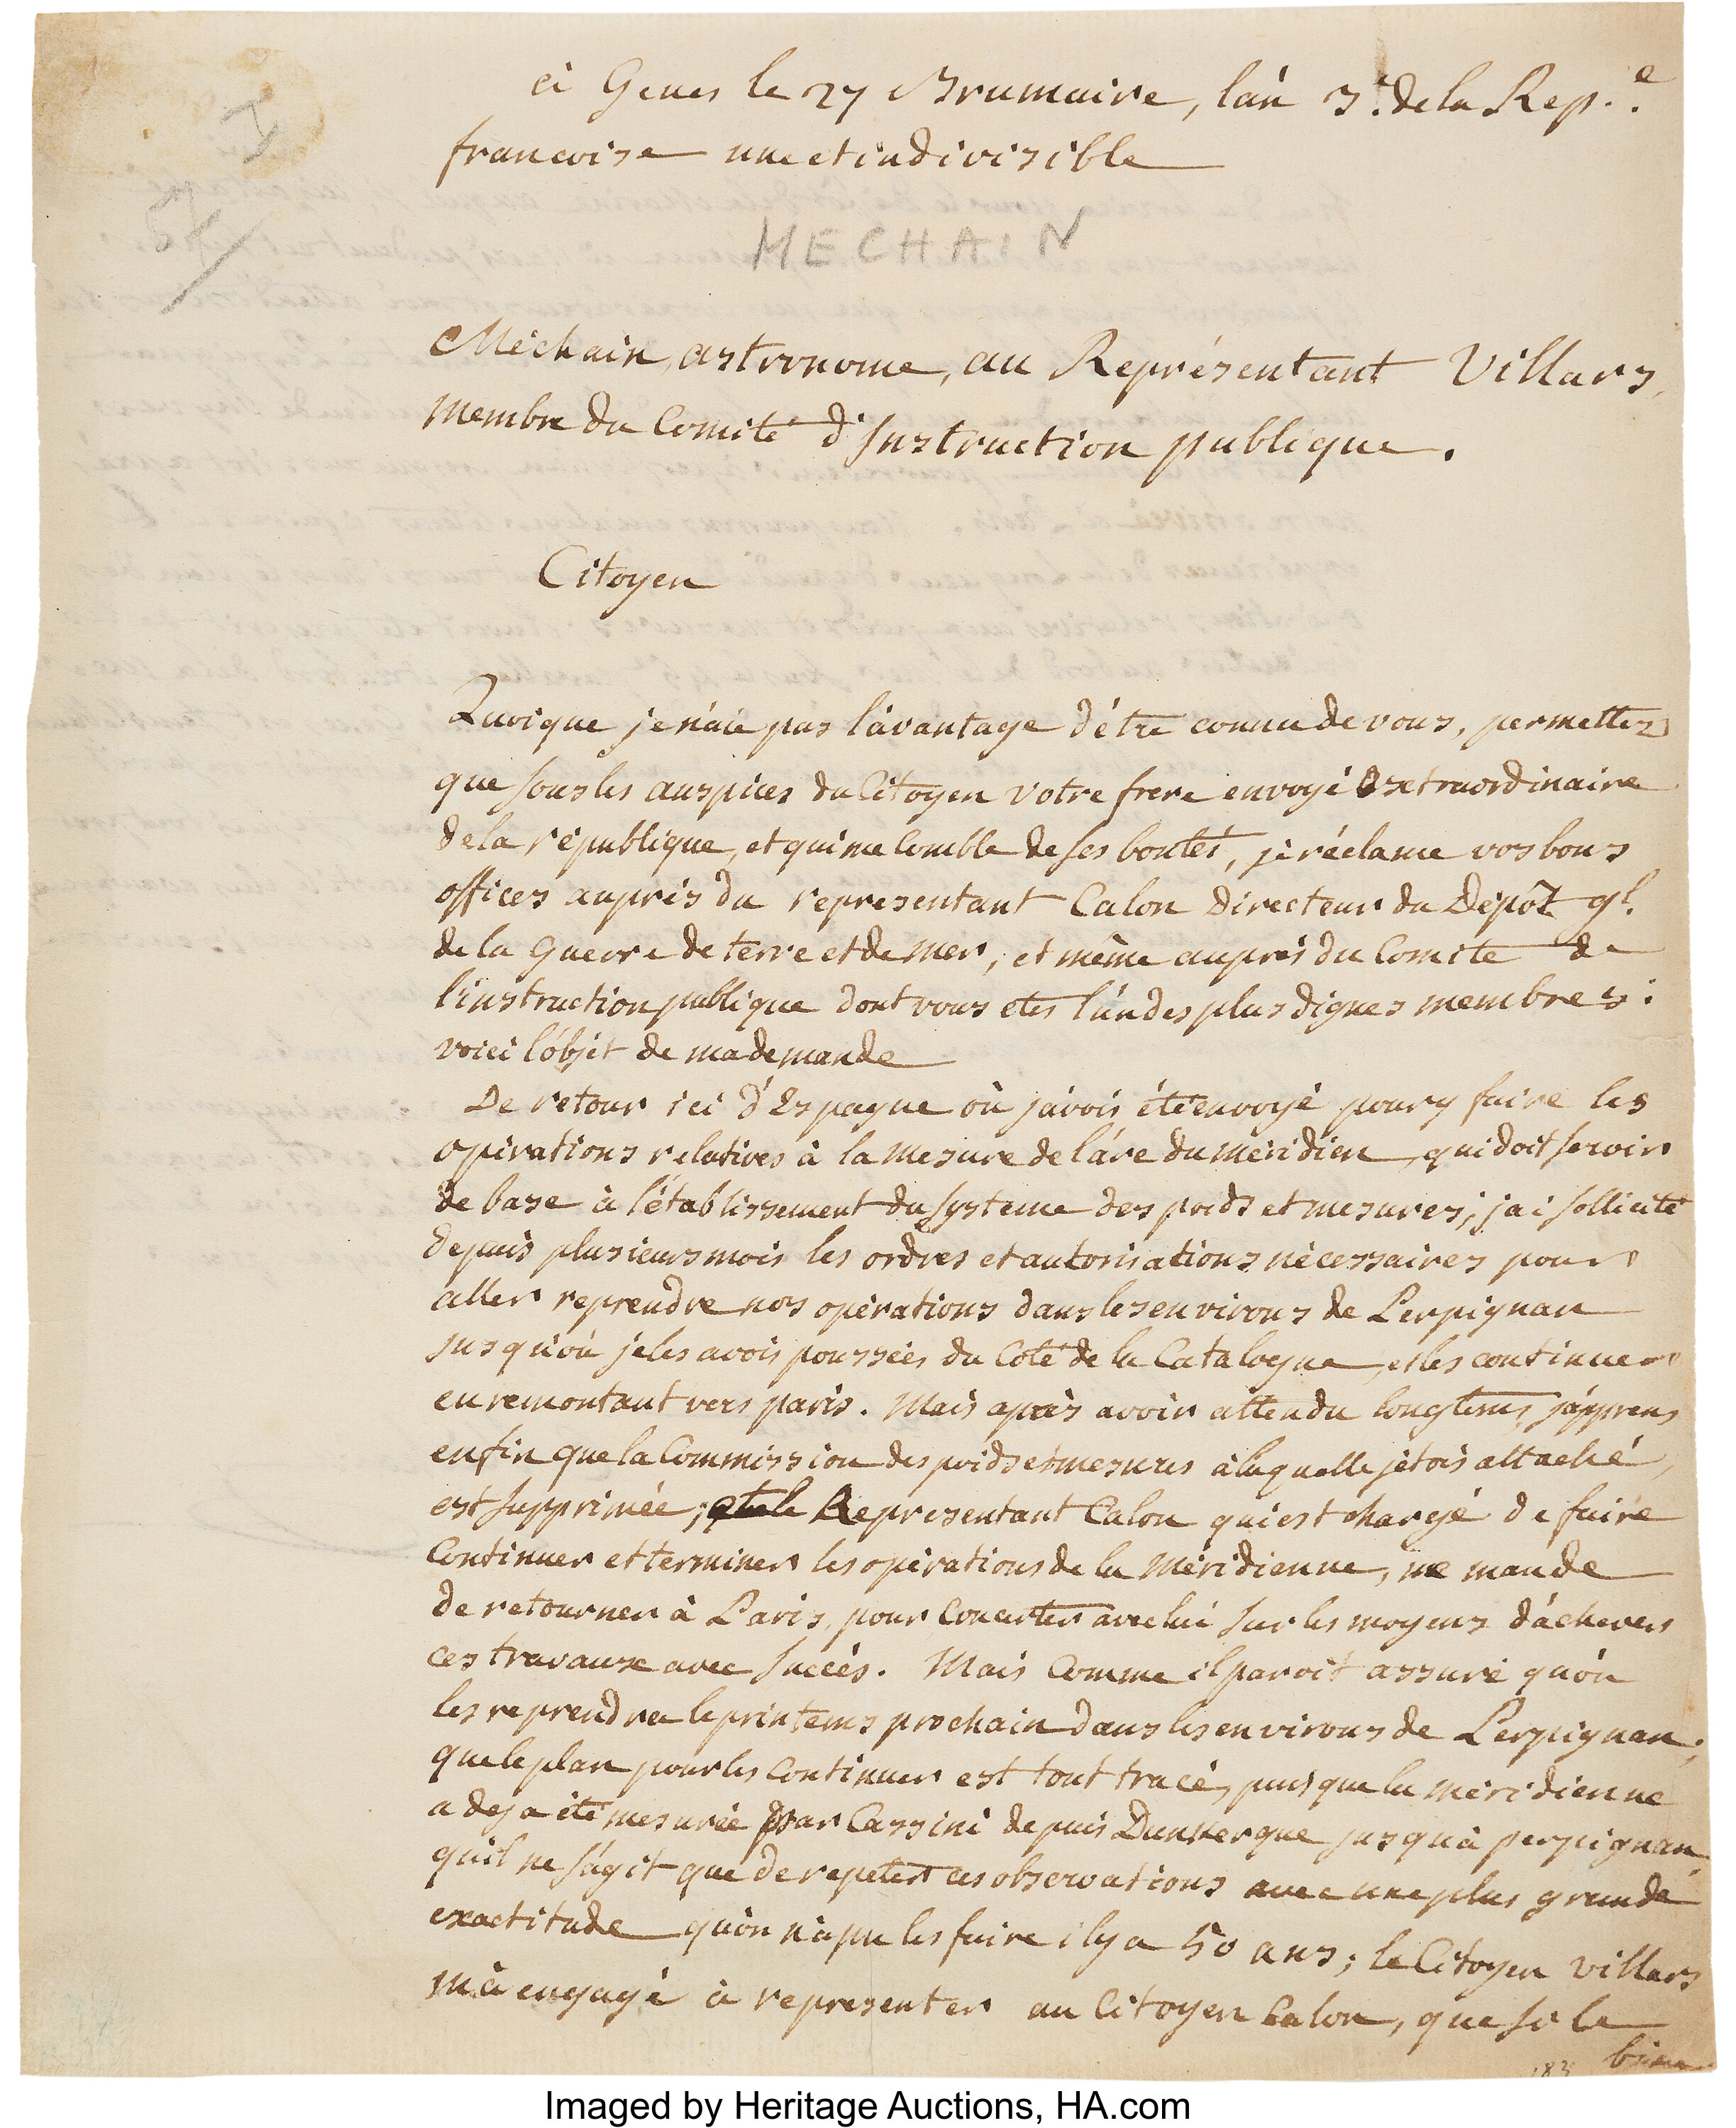 à Genes le 27 Brumaire, l'an 3.e de la Rep.e
francoise une et indivisible
I
57
MECHAIN
Méchain, astronome, au Représentant Villars,
membre du Comité d'Instruction publique.
Citoyen
Quoique je n'aie pas l'avantage d'être connu de vous, permettez
que sous les auspices du Citoyen votre frere envoyé Extraordinaire
de la république, et qui me Comble de ses bontés, je réclame vos bons
offices auprès du representant Calon Directeur du Dépôt gl.
de la Guerre de terre et de mer, et même auprès du Comité de
l'instruction publique dont vous etes l'un des plus dignes membres:
voici l'objet de ma demande
De retour ici d'Espagne où j'avois été envoyé pour y faire les
opérations relatives à la mesure de l'arc du méridien, qui doit servir
de base à l'établissement du systeme des poids et mesures; j'ai sollicité
depuis plusieurs mois les ordres et autorisations nécessaires pour
aller reprendre nos opérations dans les environs de Perpignan
jusqu'où je les avois poussées du Coté de la Catalogne, et les continuer
en remontant vers paris. Mais après avoir attendu longtems, j'apprens
enfin que la Commission des poids et mesures à laquelle j'etois attaché,
est supprimée; Representant Calon qui est chargé de faire
Continuer et terminer les opérations de la Méridienne, me mande
de retourner à Paris, pour Concerter avec lui sur les moyens d'achever
ces travaux avec succès. Mais Comme il paroit assuré qu'on
les reprendra le printems prochain dans les environs de Perpignan;
que le plan pour les Continuer est tout tracé, puisque la méridienne
a deja été mesurée par Cassini depuis Dunkerque jusqu'à perpignan,
qu'il ne s'agit que de repeter ces observations avec une plus grande
exactitude qu'on n'a pu les faire il y a 50 ans; le Citoyen Villars
m'a engagé à representer au Citoyen Calon, que si le
bien
Imaged by Heritage Auctions, HA.com